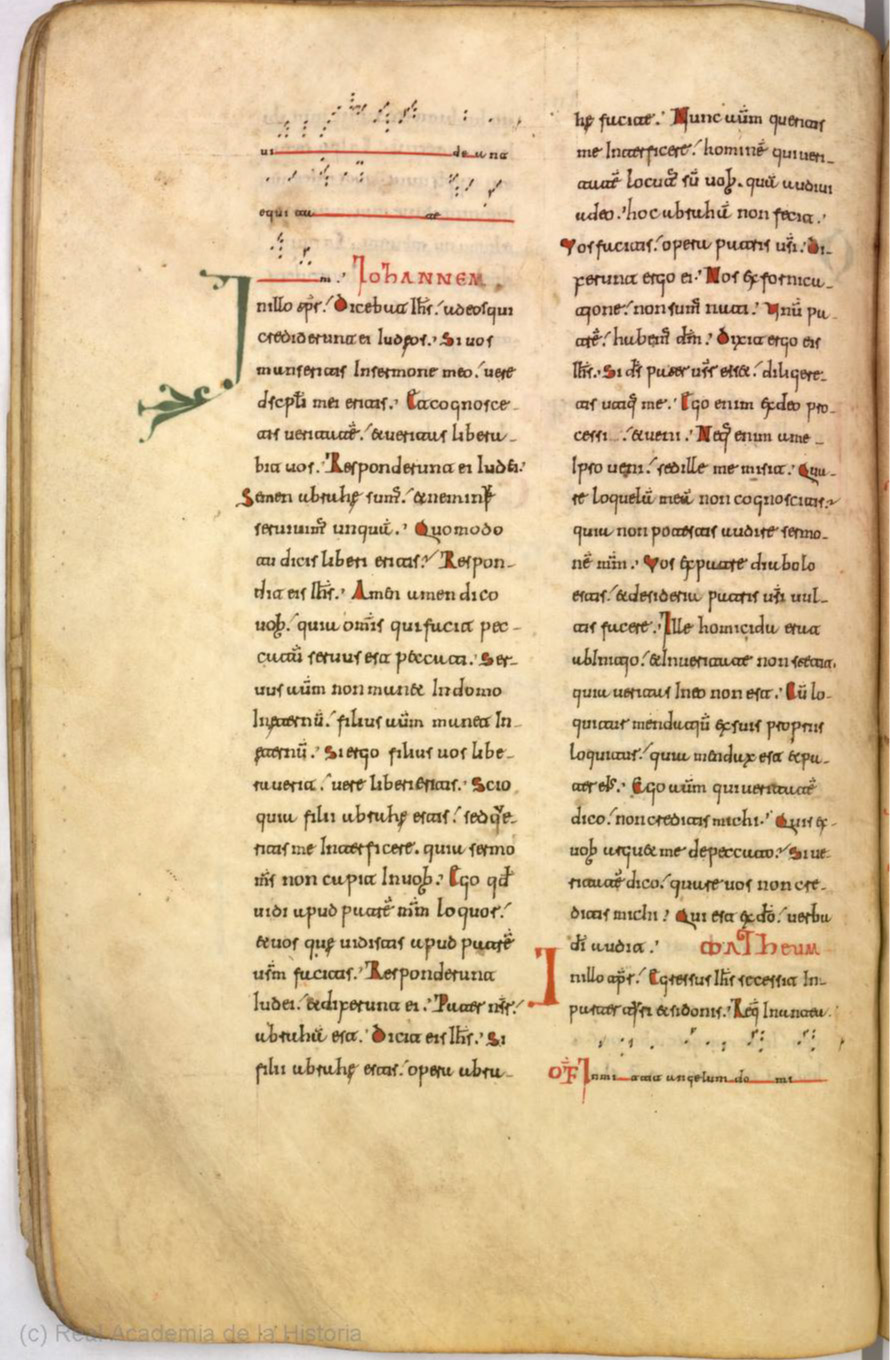 ui de una
equi au te
m. IOHANNEM
nillo tp̄r. Dicebat Ihs̄. adeosqui
crediderunt ei Iudeos. Si uos
manseritis Insermone meo. uere
dscpl̄i mei eritis. Et cognosce-
tis ueritatē. & ueritas libera-
bit uos. Responderunt ei Iudei.
Semen abrahę sum̄. & neminī
seruiuim̄ unquā. Quomodo
tu dicis liberi eritis. Respon-
dit eis Ihs̄. Amen amen dico
uob. quia om̄is qui facit pec-
catū seruus est peccati. Ser-
uus aūm non manet Indomo
Ineternū. filius aūm manet In-
eternū. Si ergo filius uos libe-
rauerit. uere liberi eritis. Scio
quia filii abrahę estis. sed qe-
ritis me Interficere. quia sermo
ms̄ non capit Inuob. Ego qd
uidi apud patrē mm̄ loquor.
& uos quę uidistis apud patrē
usm̄ facitis. Responderunt
Iudei. & dixerunt ei. Pater nsr̄.
abrahā est. Dicit eis Ihs̄. Si
filii abrahę estis. opera abra-
hę facite. Nunc aūm queritis
me Interficere. hominē qui ueri-
tatē locut sū uob. quā audiui
adeo. hoc abrahā non fecit.
Vos facitis. opera patris usi. Di-
xerunt ergo ei. Nos ex fornica-
tione. non sum̄ nati. Vnū pa-
trē. habem̄ dm̄. Dixit ergo eis
Ihs̄. Si ds̄ pater usr̄ esset. diligere-
tis utiq me. Ego enim ex deo pro-
cessi. & ueni. Neq enim a me
Ipso ueni. sed ille me misit. Qua-
re loquelā meā non cognoscitis.
quia non potestis audire sermo-
nē mm̄. Vos ex patre diabolo
estis. & desideria patris usi uul-
tis facere. Ille homicida erat
ab Initio. & Inueritate non stetit.
quia ueritas Ineo non est. Cū lo-
quitur mendatiū ex suis propriis
loquitur. quia mendax est & pa-
ter eius. Ego aūm qui ueritatē
dico. non creditis michi. Quis ex
uob arguet me de peccato. Si ue-
ritatē dico. quare uos non cre-
ditis michi. Qui est ex dō. uerba
di audit. MATHEUM
nillo tp̄r. Egressus Ihs̄ secessit In
partes tyri & sidonis. Req Inantea.
OF Inmi tata angelum do mi
(c) Real Academia de la Historia